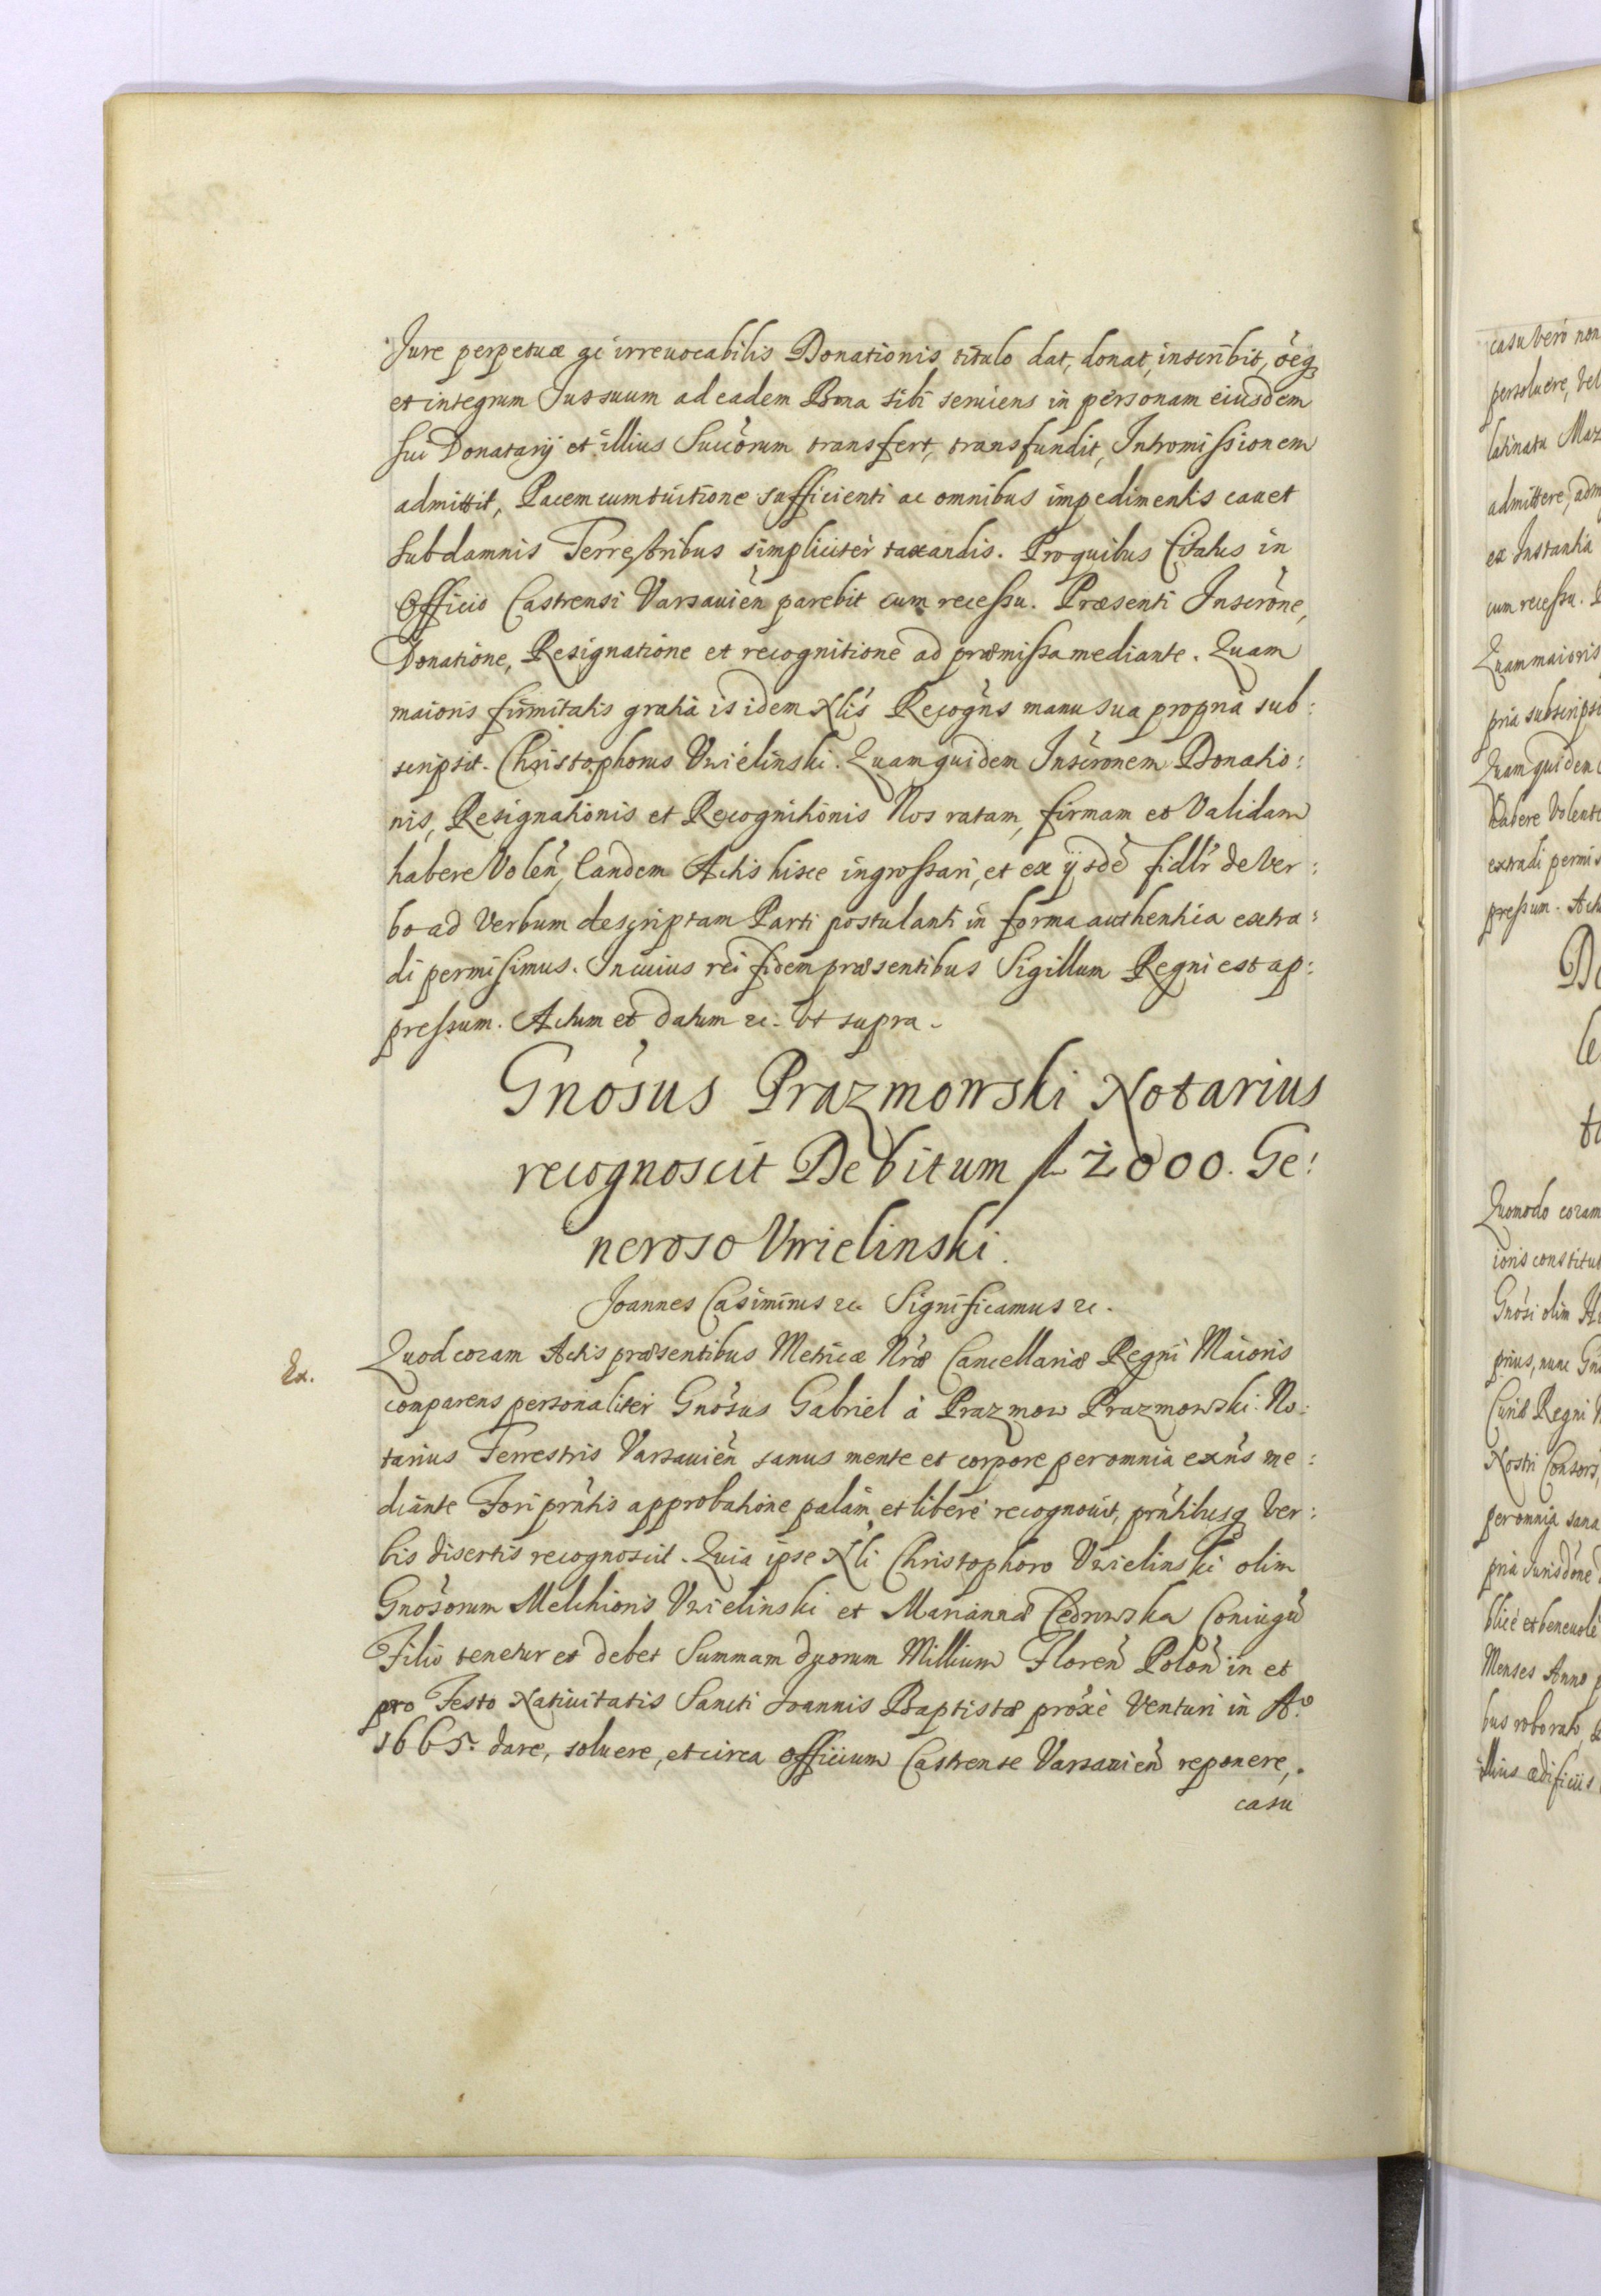 Jure perpetuæ ac irreuocabilis Donationis titulo dat, donat, inscribit, oēq
et integrum Jus suum ad eadem Bona sibi seruiens in personam eiusdem
sui Donatarij et illius Succōrum transfert, transfundit, Intromissionem
admittit, Pacem cum tuitione sufficienti ac omnibus impedimentis cauet
sub damnis Terrestribus simpliciter taxandis. Pro quibus Citatus in
Officio Castrensi Varsauien̄ parebit cum recessu. Præsenti Inscrōne,
Donatione, Resignatione et recognitione ad præmissa mediante. Quam
maioris firmitatis gratiâ is idem Nlis Recogn̄s manu sua propria sub:
scripsit. Christophorus Vzielinski. Quam quidem Inscrōnem Donatio:
nis, Resignationis et Recognitionis Nos ratam, firmam et Validam
habere Volen̄, eandem Actis hisce ingrossari, et ex ijsdē fidlr̄ de Ver:
bo ad Verbum descriptam Parti postulanti in forma authentica extra:
di permisimus. In cuius rei fidem præsentibus Sigillum Regni est ap:
pressum. Actum et Datum &c. Vt supra.
Gnōsus Prazmowski Notarius
recognoscit Debitum fl 2000. Ge:
neroso Vzielinski.
Joannes Casimirus &c Significamus &c.
Ex.
Quod coram Actis præsentibus Metricæ Nr̄æ Cancellariæ Regni Maioris
comparens personaliter Gnōsus Gabriel à Prazmow Prazmowski No:
tarius Terrestris Varsauien̄ sanus mente et corpore per omnia exn̄s me:
diante Fori prn̄tis approbatione palàm et liberè recognouit, prn̄tibusq Ver:
bis disertis recognoscit. Quia ipse Nli Christophoro Vzielinski olim
Gnōsorum Melchioris Vzielinski et Mariannæ Cedrowska Coniugū
Filio tenetur et debet Summam duorum Millium Floren̄ Polon̄ in et
pro Festo Natiuitatis Sancti Joannis Baptistæ proxè Venturi in Aº
1665. dare, soluere, et circa officium Castrense Varsauien̄ reponere,
casu
casu verò non
persoluere, vel
latinatu Maz
admittere, adm
ex Instantia
cum recessu.
Quam maioris
pria subscripsi
Quam quidem
habere Volente
extradi permis
pressum. Act
Quomodo coram
ioris constitut
Gnōsi olim
prius, nunc Gn
Curiæ Regni
Nostri Consors,
per omnia sana
pria Jurisdōne
blicè et beneuolè
Menses Anno p
bus roborato,
illius ædificiis